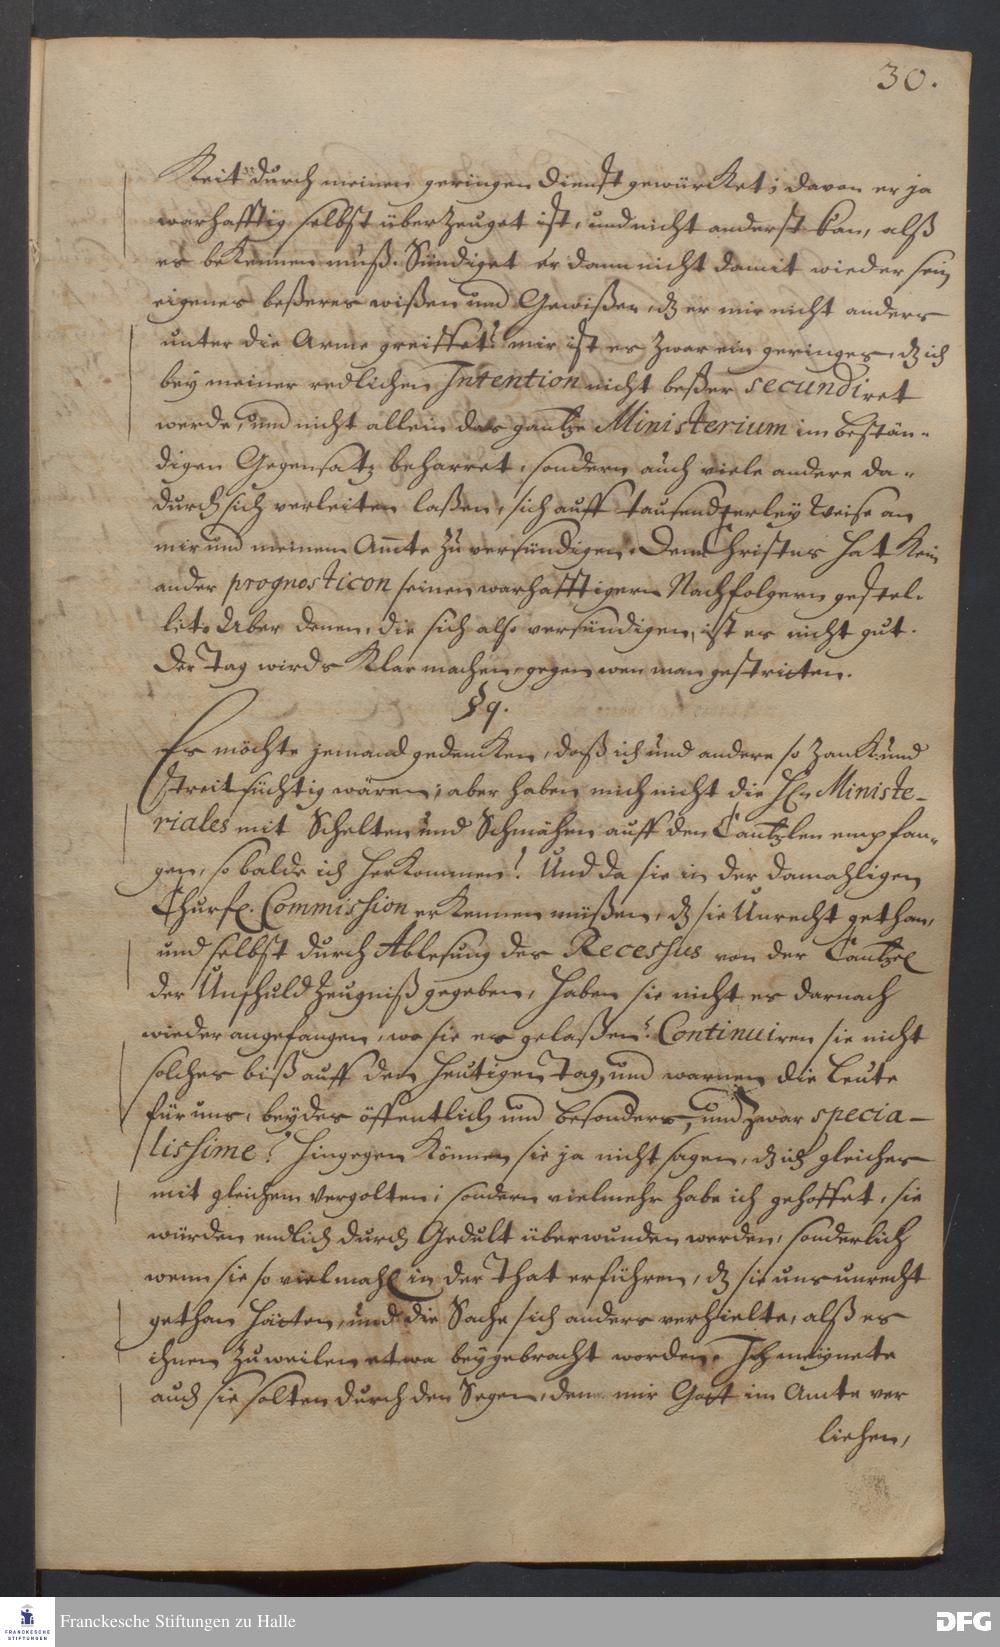 30.
Keit durch meinen geringen Dienst gewürcket; davon er ja
warhafftig selbst überzeuget ist, und nicht anderst kan, alß
es bekennen muß. Sündiget er dann nicht damit wieder sein
eigenes beßeres wißen und Gewißen, dz er mir nicht anders
unter die Arme greiffet? mir ist es zwar ein geringes, dz ich
bey meiner redlichen Intention nicht beßer secundiret
werde, und nicht allein das gantze Ministerium im bestän-
digen Gegensatz beharret, sondern auch viele andere da-
durch sich verleiten laßen, sich auff tausenderley Weise an
mir und meinem Amte zu versündigen. Denn Christus hat kein
ander prognosticon seinen warhafftigen Nachfolgern gestel-
let. Aber denen, die sich also versündigen, ist es nicht gut.
Der Tag wirds klar machen, gegen wen man gestritten.
§ 9.
Es möchte jemand gedencken, daß ich und andere so zanck und
streitsüchtig wären; aber haben mich nicht die H. Ministe-
riales mit Schelten und Schmähen auff den Cantzlen empfan-
gen, so balde ich herkommen? Und da sie in der damahligen
Churf. Commission erkennen müßen, dz sie Unrecht gethan,
und selbst durch Ablesung des Recessus von der Cantzel
der Unschuld Zeugniß gegeben, haben sie nicht es darnach
wieder angefangen, wo sie es gelaßen? Continuiren sie nicht
solches biß auff den heutigen Tag, und warnen die Leute
für uns, beydes öffentlich und besonders, und zwar specia-
lissime? Hingegen können sie ja nicht sagen, dz ich gleiches
mit gleichem vergolten; sondern vielmehr habe ich gehoffet, sie
würden endlich durch Gedult überwunden werden, sonderlich
wenn sie so vielmahl in der That erführen, dz sie uns unrecht
gethan hätten, und die Sache sich anders verhielte, alß es
ihnen zuweilen etwa beygebracht worden. Ich meynete
auch sie solten durch den Segen, den mir Gott im Amte ver
liehen,
Franckesche Stiftungen zu Halle
FRANCKESCHE
STIFTUNGEN
DFG